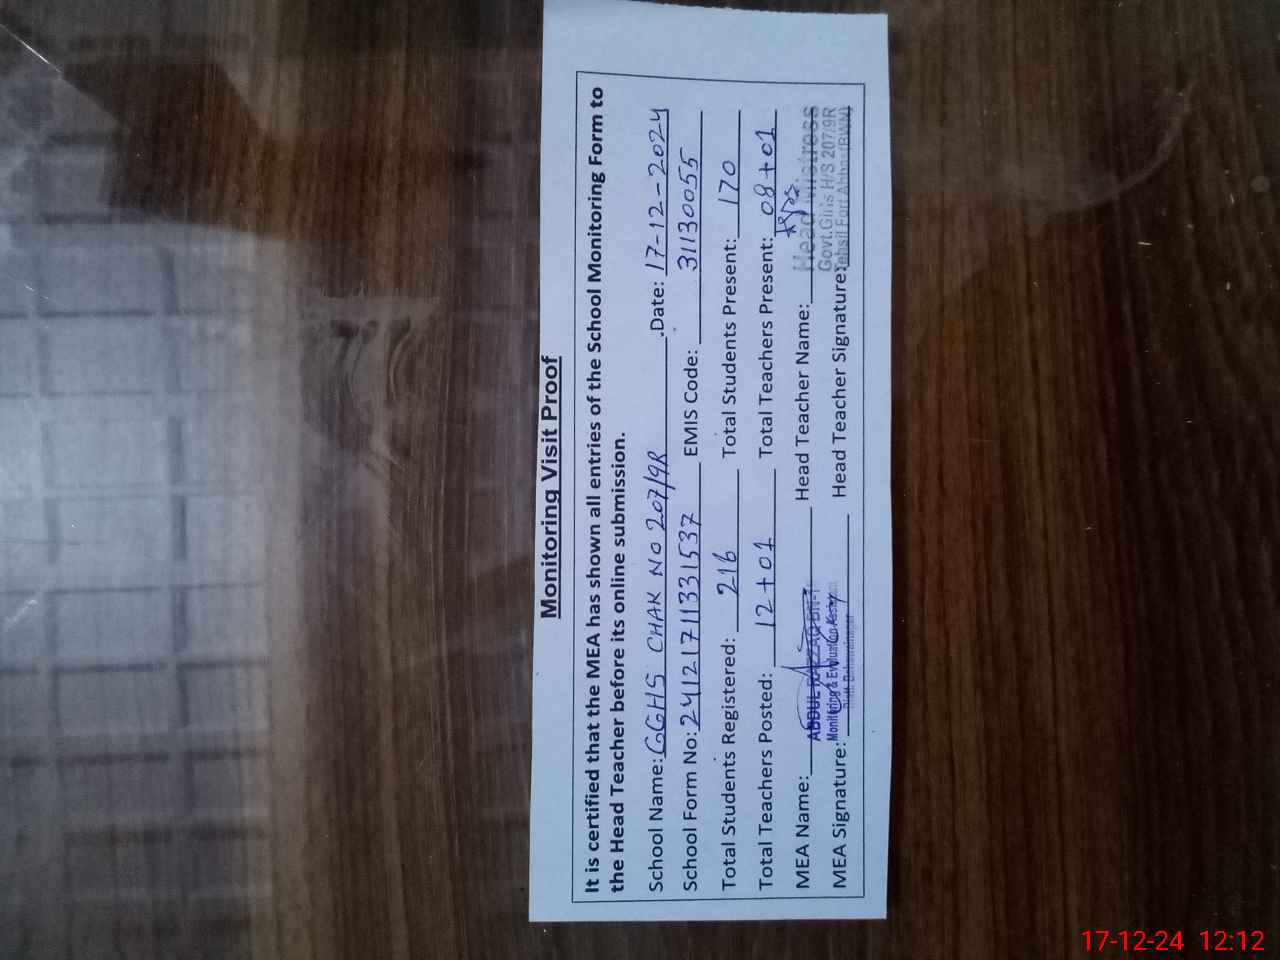 Monitoring Visit Proof
It is certified that the MEA has shown all entries of the School Monitoring Form to
the Head Teacher before its online submission.
School Name: GGHS CHAK NO 207/9R Date: 17-12-2024
School Form No: 24121711331537 EMIS Code: 31130055
Total Students Registered: 216 Total Students Present: 170
Total Teachers Posted: 12+01 Total Teachers Present: 08+01
MEA Name: ABDUL RAZZAQ BN-1 Head Teacher Name: Head Mistress
Monitoring & Evaluation Govt.Girls H/S 207/9R
MEA Signature: Distt. Bahawalnagar Head Teacher Signature: Tehsil Fort Abbas(BWN)
17-12-24 12:12